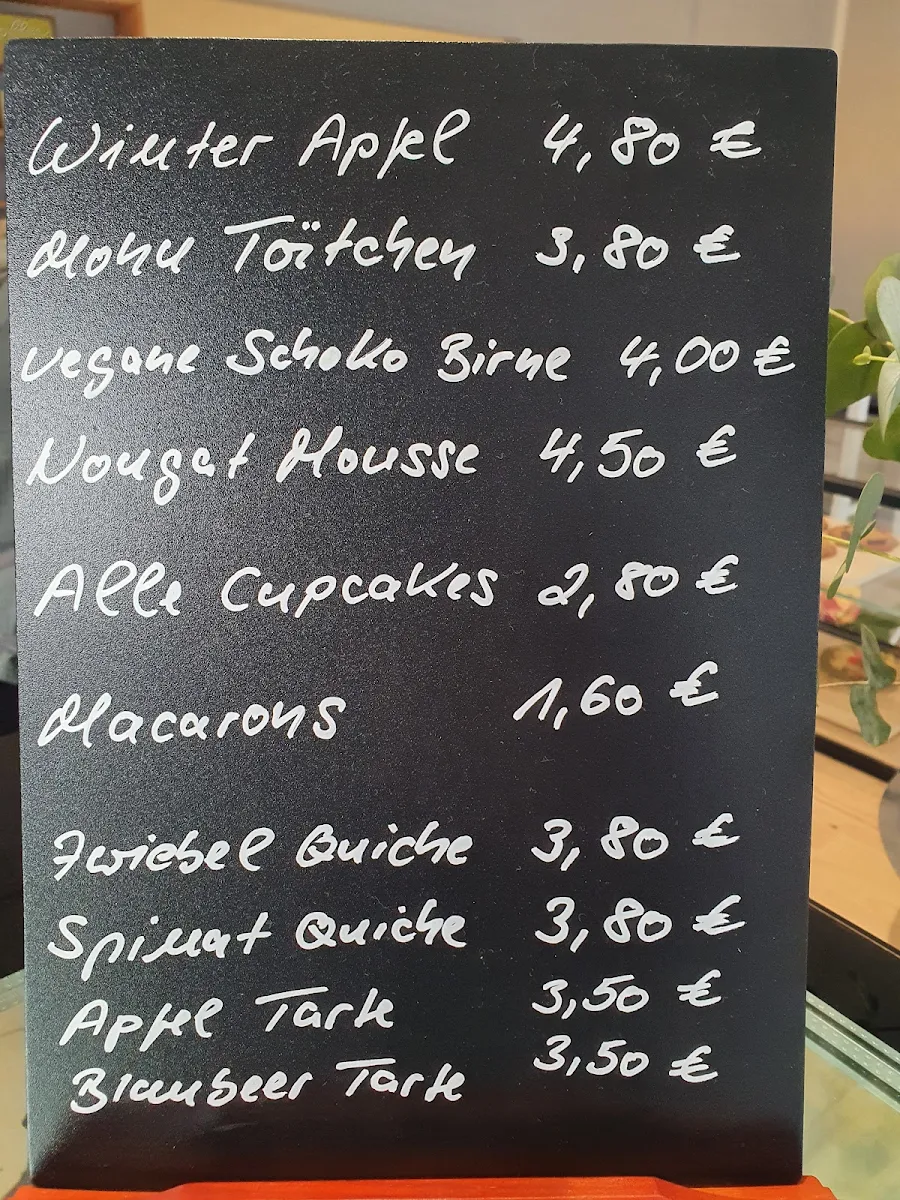 Winter Apfel 4,80 €
Mohn Törtchen 3,80 €
vegane Schoko Birne 4,00 €
Nougat Mousse 4,50 €
Alle Cupcakes 2,80 €
Macarons 1,60 €
Zwiebel Quiche 3,80 €
Spinat Quiche 3,80 €
Apfel Tarte 3,50 €
Blaubeer Tarte 3,50 €